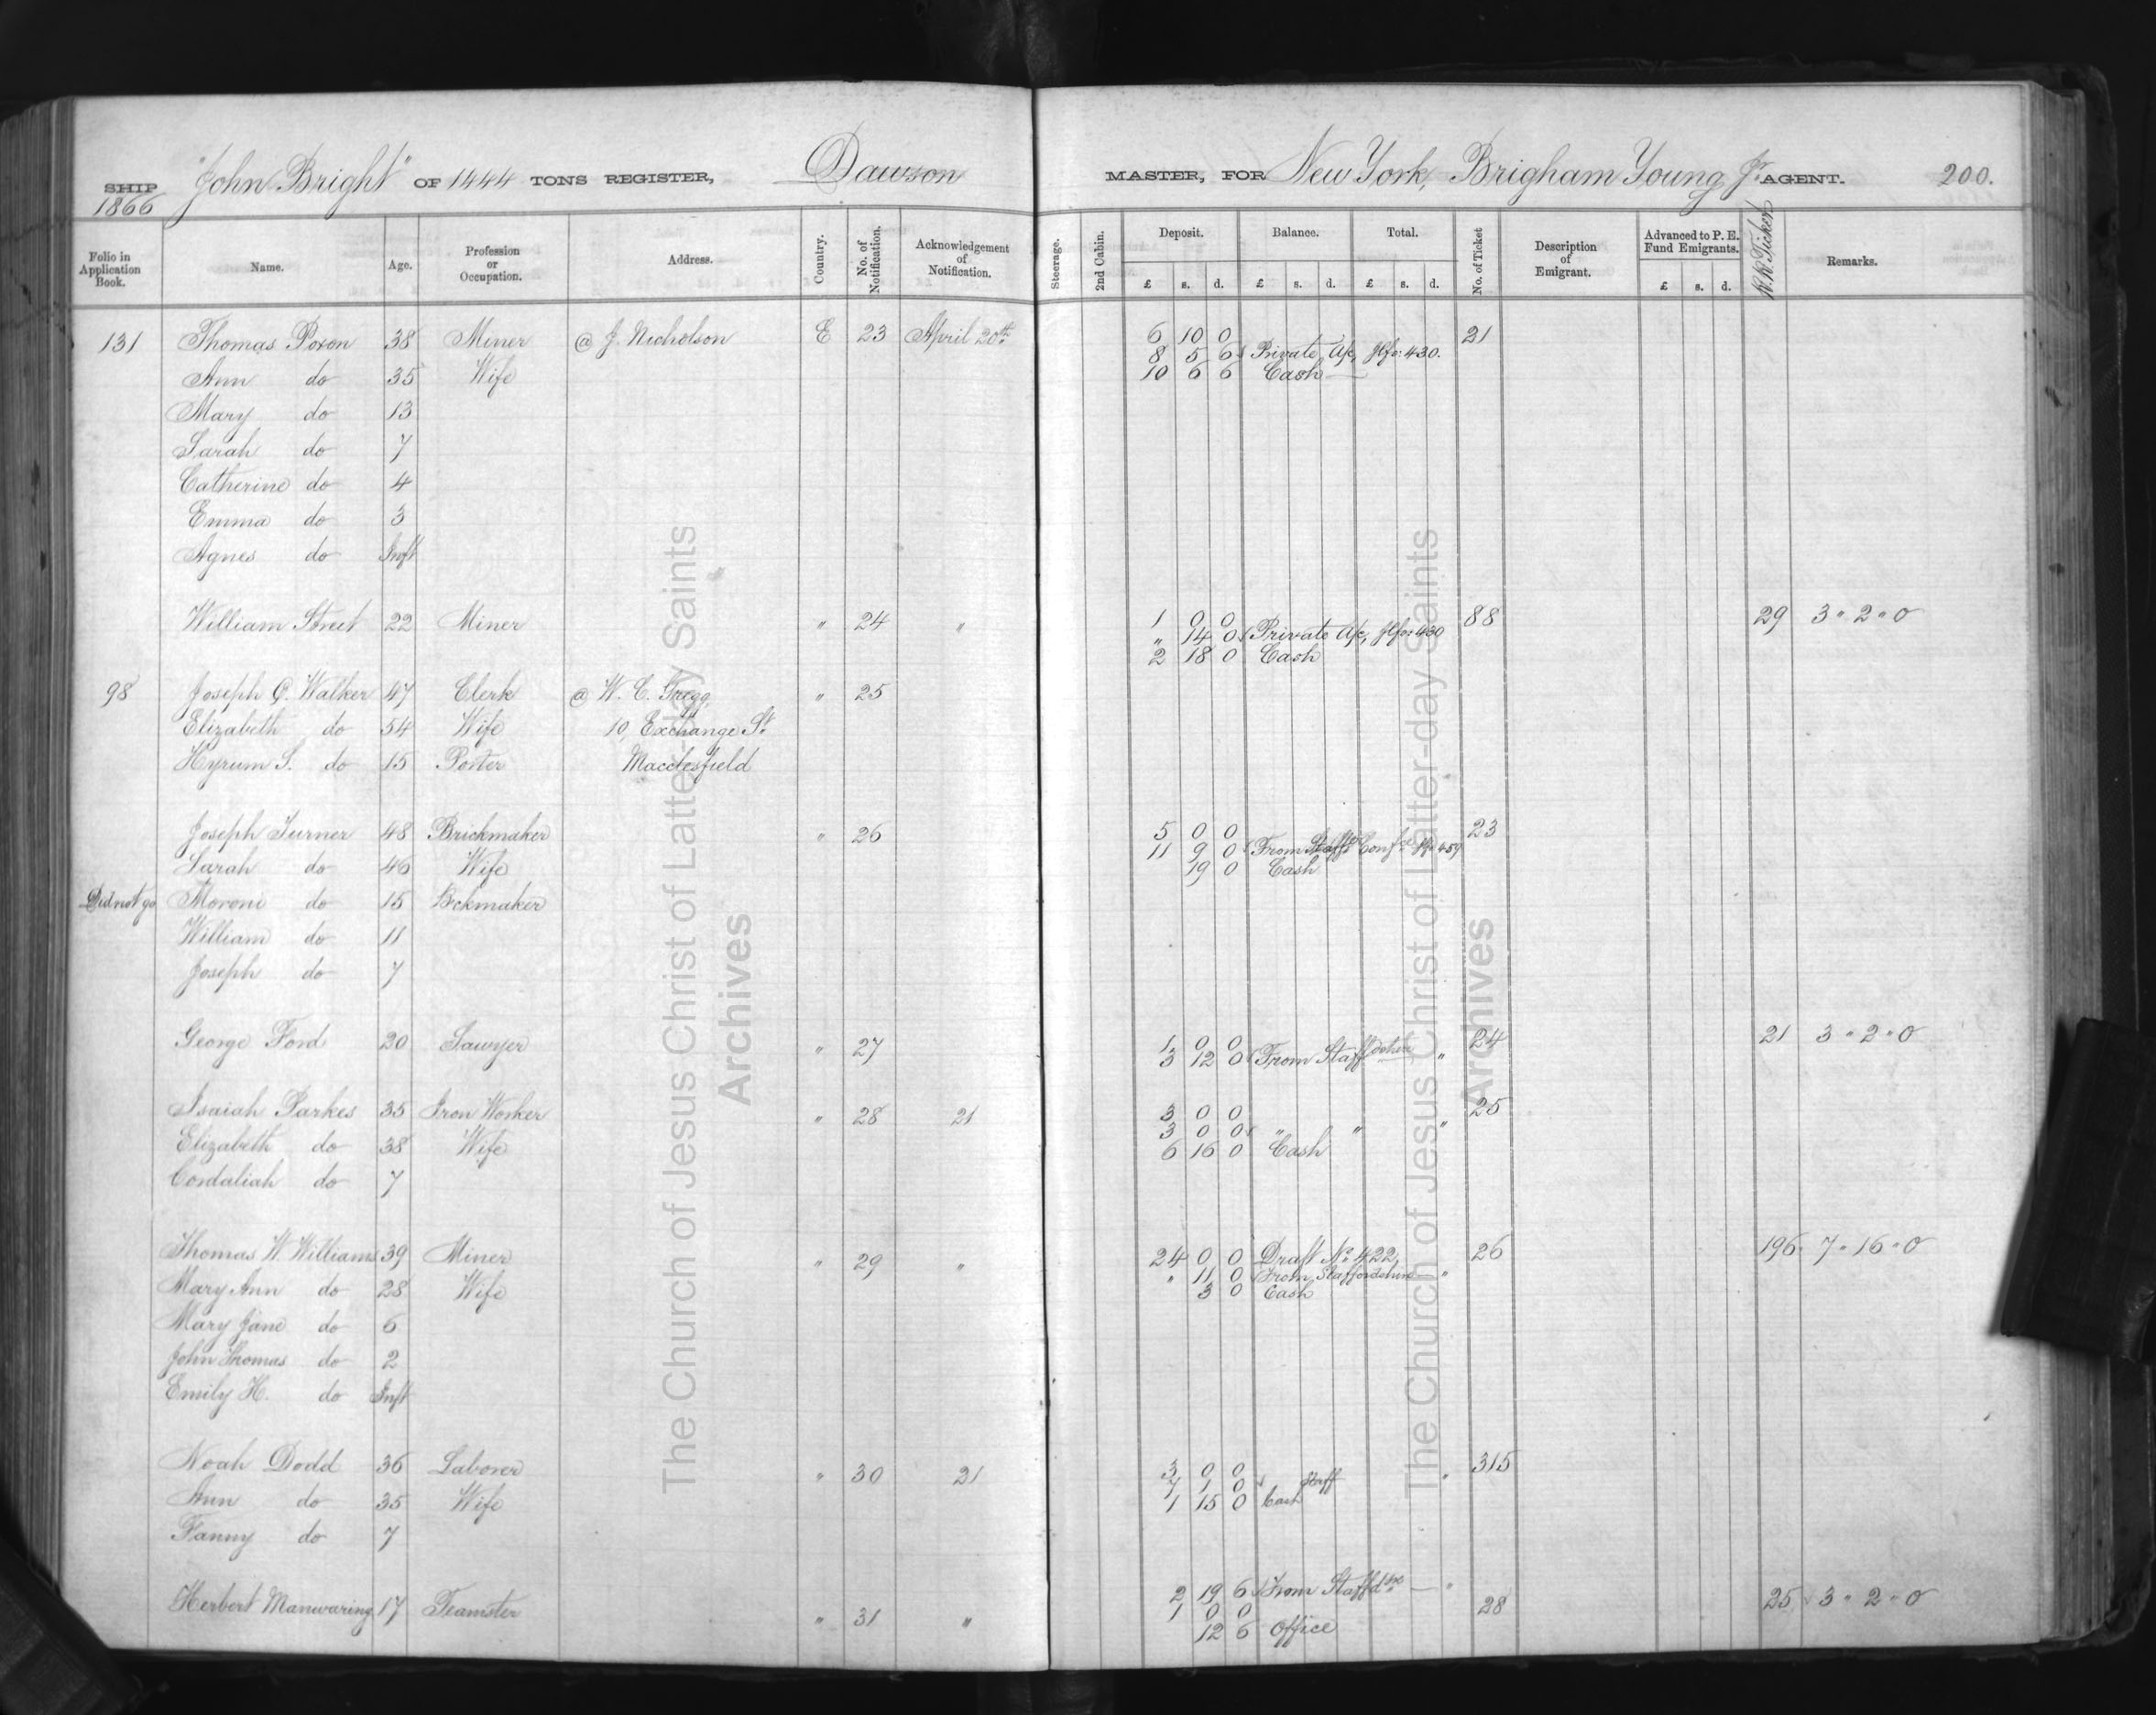 SHIP "John Bright" OF 1444 TONS REGISTER, Dawson MASTER, FOR New York, Brigham Young Jr AGENT. 200.
1866
Folio in Application Book. Name. Age. Profession or Occupation. Address. Country. No. of Notification. Acknowledgement of Notification. Steerage. 2nd Cabin. Deposit. Balance. Total. No. of Ticket Description of Emigrant. Advanced to P. E. Fund Emigrants. R.R. Tickets Remarks.
£ s. d. £ s. d. £ s. d. £ s. d.
131 Thomas Poxon 38 Miner @ J. Nicholson E 23 April 20th 6 10 0 21
8 5 6 Private A/c, Ilfo. 430.
Ann do 35 Wife 10 6 6 Cash
Mary do 13
Sarah do 7
Catherine do 4
Emma do 3
Agnes do Inft
William Street 22 Miner " 24 " 1 0 0 88 29 3 " 2 " 0
" 14 0 Private A/c, Ilfo. 430
2 18 0 Cash
98 Joseph G. Walker 47 Clerk @ W. C. Gregg, " 25
Elizabeth do 54 Wife 10, Exchange St.
Hyrum S. do 15 Porter Macclesfield
Joseph Turner 48 Brickmaker " 26 5 0 0 23
11 9 0 From Staffs Conf. 459
Sarah do 46 Wife 19 0 Cash
Did not go Moroni do 15 Bckmaker
William do 11
Joseph do 7
George Ford 20 Sawyer " 27 1 0 0 24 21 3 " 2 " 0
3 12 0 From Staffordshire "
Isaiah Parkes 35 Iron Worker " 28 21 3 0 0 25
3 0 0 " " "
Elizabeth do 38 Wife 6 16 0 Cash
Cordaliah do 7
Thomas W. Williams 39 Miner " 29 " 24 0 0 Draft No. 422, 26 196 7 " 16 " 0
" 11 0 From Staffordshire "
Mary Ann do 28 Wife 3 0 Cash
Mary Jane do 6
John Thomas do 2
Emily H. do Inft
Noah Dodd 36 Laborer " 30 21 3 0 0 315
7 1 0 Staff "
Ann do 35 Wife 1 15 0 Cash
Fanny do 7
2 19 6 From Staffdsre "
Herbert Manwaring 17 Teamster " 31 " 1 0 0 28 25 3 " 2 " 0
12 6 Office
The Church of Jesus Christ of Latter-day Saints
Archives
The Church of Jesus Christ of Latter-day Saints
Archives